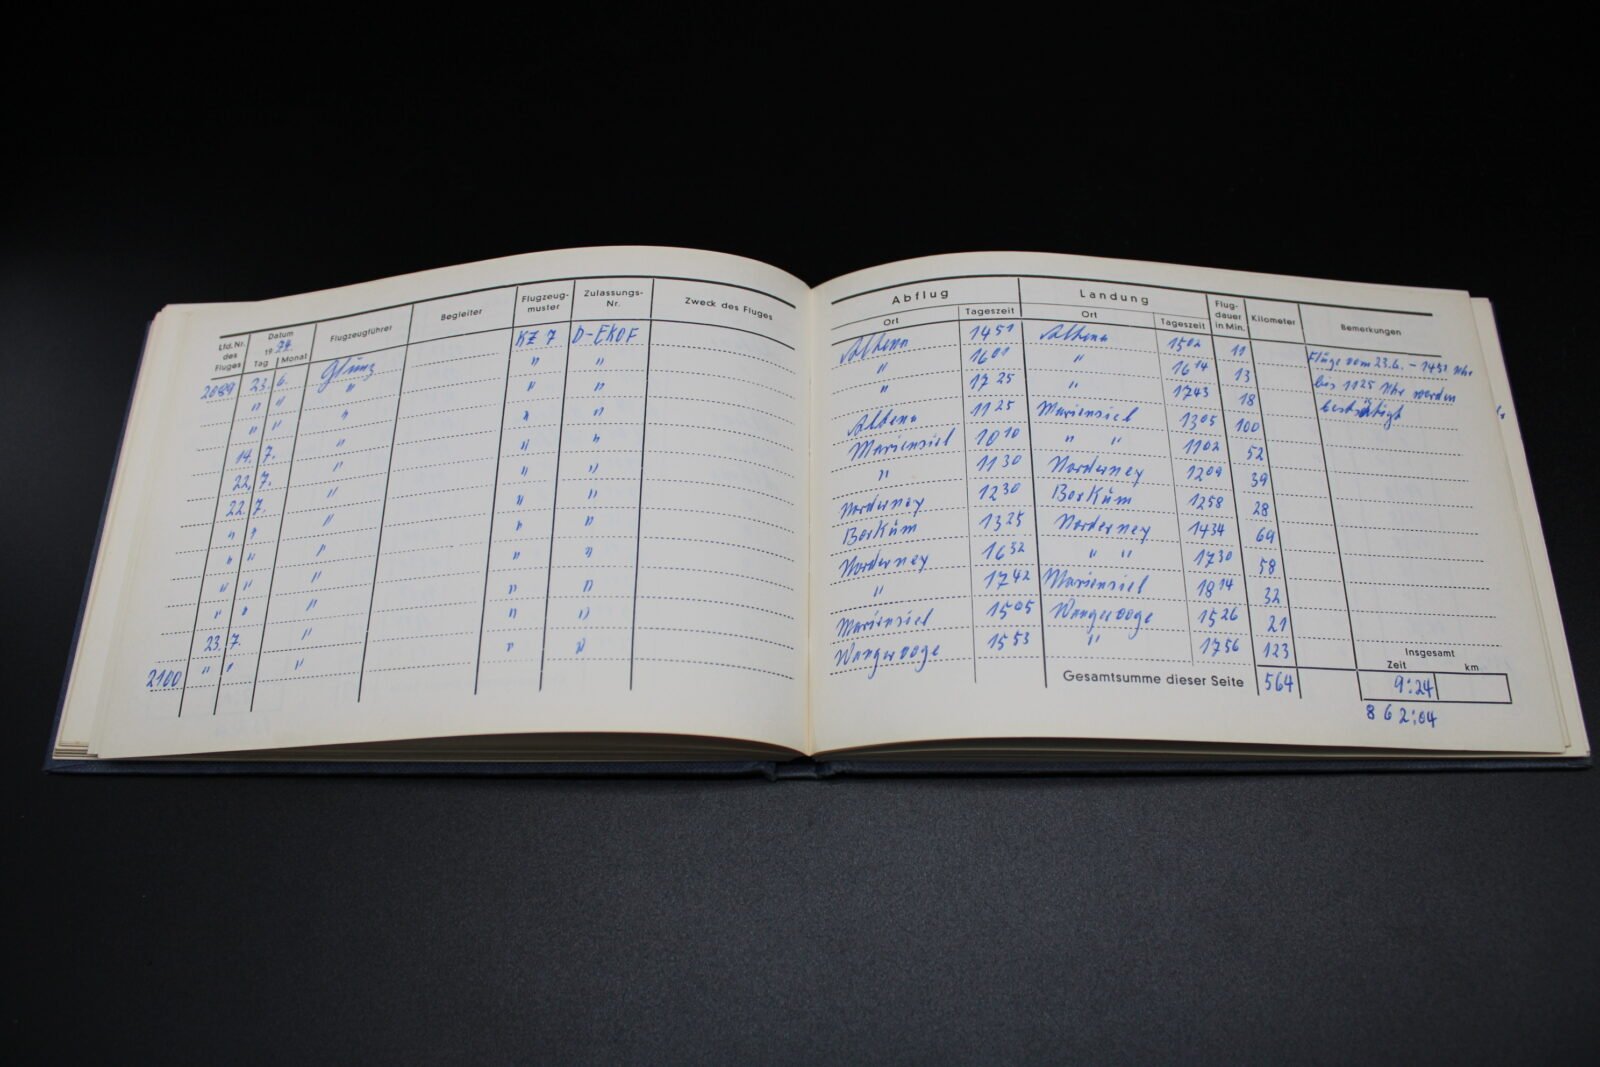 Lfd. Nr. des Fluges | Datum 1974 Tag | Monat | Flugzeugführer | Begleiter | Flugzeug-muster | Zulassungs-Nr. | Zweck des Fluges | Abflug Ort | Tageszeit | Landung Ort | Tageszeit | Flug-dauer in Min. | Kilometer | Bemerkungen
2089 | 23. | 6. | Glunz | KZ 7 | D-EKOF | Altena | 14 51 | Altena | 1502 | 11 | Flüge vom 23.6. – 1451 Uhr
" | " | " | " | " | " | 1601 | " | 16 14 | 13 | bis 1125 Uhr werden
" | " | " | " | " | " | 17 25 | " | 1743 | 18 | bestätigt
14. | 7. | " | " | " | Altena | 11 25 | Mariensiel | 1305 | 100
22. | 7. | " | " | " | Mariensiel | 10 10 | " " | 1102 | 52
22. | 7. | " | " | " | " | 11 30 | Norderney | 1209 | 39
" | " | " | " | " | Norderney | 12 30 | Borkum | 1258 | 28
" | " | " | " | " | Borkum | 13 25 | Norderney | 1434 | 69
" | " | " | " | " | Norderney | 16 32 | " " | 1730 | 58
" | " | " | " | " | " | 17 42 | Mariensiel | 18 14 | 32
23. | 7. | " | " | " | Mariensiel | 15 05 | Wangerooge | 15 26 | 21
2100 | " | " | " | " | " | Wangerooge | 15 53 | " | 1756 | 123
Insgesamt
Zeit | km
Gesamtsumme dieser Seite | 564 | 9:24
862:04